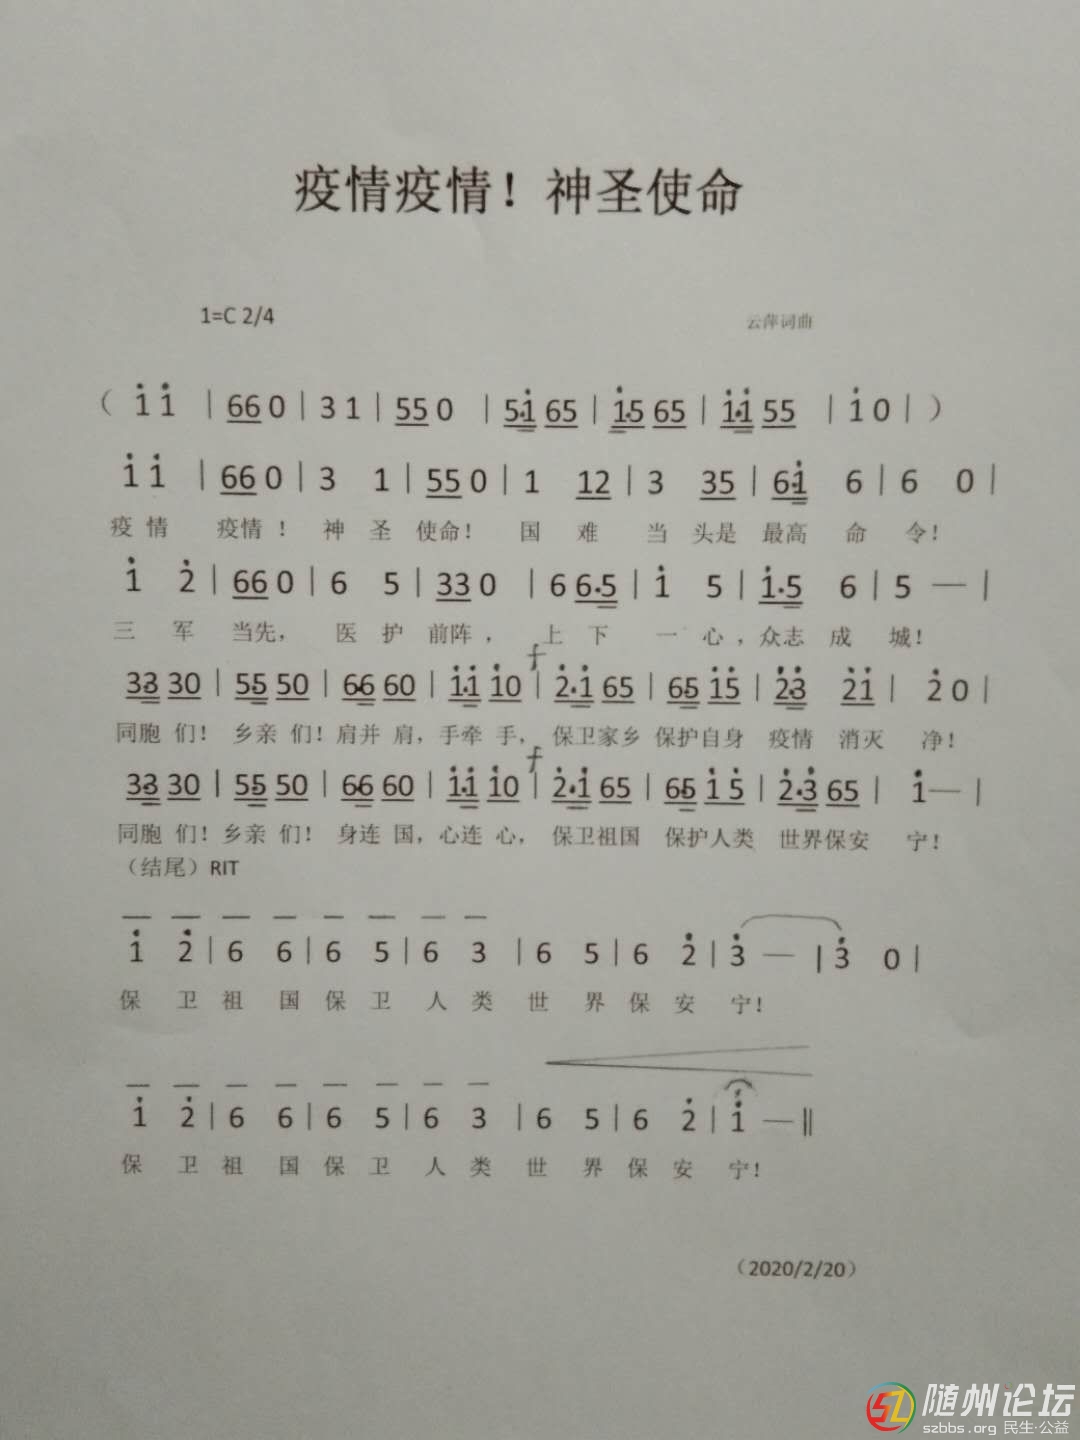 疫情疫情！神圣使命
1=C 2/4 云萍词曲
（ i i | 66 0 | 3 1 | 55 0 | 5·i 65 | i·5 65 | i·i 55 | i 0 | ）
i i | 66 0 | 3 1 | 55 0 | 1 12 | 3 35 | 6·i 6 | 6 0 |
疫 情 疫情！ 神 圣 使命！ 国 难 当 头是 最高 命 令！
i 2̇ | 66 0 | 6 5 | 33 0 | 6 6·5 | i 5 | i·5 6 | 5 — |
三 军 当先， 医 护 前阵， 上 下 一 心，众志 成 城！
f
3·3 30 | 5·5 50 | 6·6 60 | i·i i0 | 2̇·i 65 | 65 i5 | 2̇·3̇ 2̇i | 2̇ 0 |
同胞 们！ 乡亲 们！肩并 肩，手牵 手， 保卫家乡 保护自身 疫情 消灭 净！
f
3·3 30 | 5·5 50 | 6·6 60 | i·i i0 | 2̇·i 65 | 65 i 5 | 2̇·3̇ 65 | i — |
同胞 们！乡亲 们！ 身连 国，心连 心， 保卫祖国 保护人类 世界保安 宁！
（结尾）RIT
i 2̇ | 6 6 | 6 5 | 6 3 | 6 5 | 6 2̇ | 3̇ — | 3̇ 0 |
保 卫 祖 国 保 卫 人 类 世 界 保 安 宁！
i 2̇ | 6 6 | 6 5 | 6 3 | 6 5 | 6 2̇ | i — ‖
保 卫 祖 国 保 卫 人 类 世 界 保 安 宁！
（2020/2/20）
随州论坛
szbbs.org 民生·公益